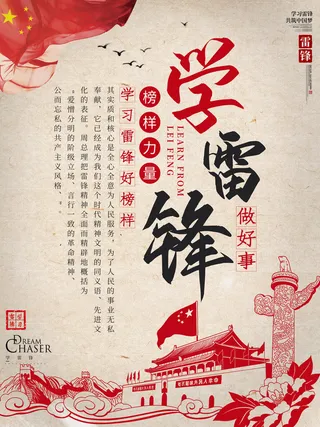 学习雷锋
共筑中国梦
雷锋
学雷锋
LEARN FROM
LEI FENG
做好事
榜样力量
学习雷锋好榜样
其实质和核心是全心全意为人民服务，为了人民的事业无私
奉献，它已经成为我们这个时代精神文明的同义语、先进文
化的表征。周总理把雷锋精神全面而精辟地概括为
“爱憎分明的阶级立场、言行一致的革命精神、
公而忘私的共产主义风格、”。
DREAM
CHASER
学雷锋